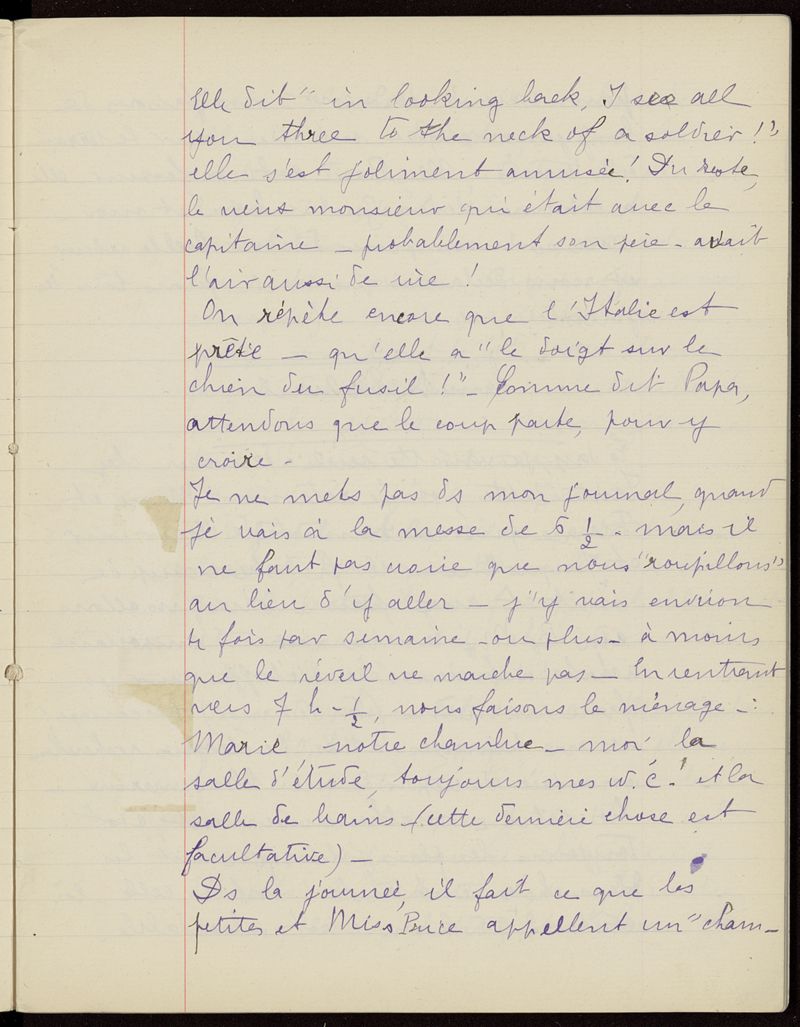 Elle dit "in looking back, I see all
you three to the neck of a soldier !"
elle s'est joliment amusée ! Du reste,
le vieux monsieur qui était avec le
capitaine - probablement son père - avait
l'air aussi de rire !
On répète encore que l'Italie est
prête - qu'elle a "le doigt sur le
chien du fusil !" - Comme dit Papa,
attendons que le coup parte, pour y
croire -
Je ne mets pas ds mon journal, quand
je vais à la messe de 6 1/2 - mais il
ne faut pas croire que nous "roupillons"
au lieu d'y aller - j'y vais environ
4 fois par semaine - ou plus - à moins
que le réveil ne marche pas - En rentrant
vers 7 h - 1/2, nous faisons le ménage - :
Marie notre chambre - moi la
salle d'étude, toujours mes w.c. ! et la
salle de bains (cette dernière chose est
facultative) -
Ds la journée, il fait ce que les
petites et Miss Price appellent un "cham-